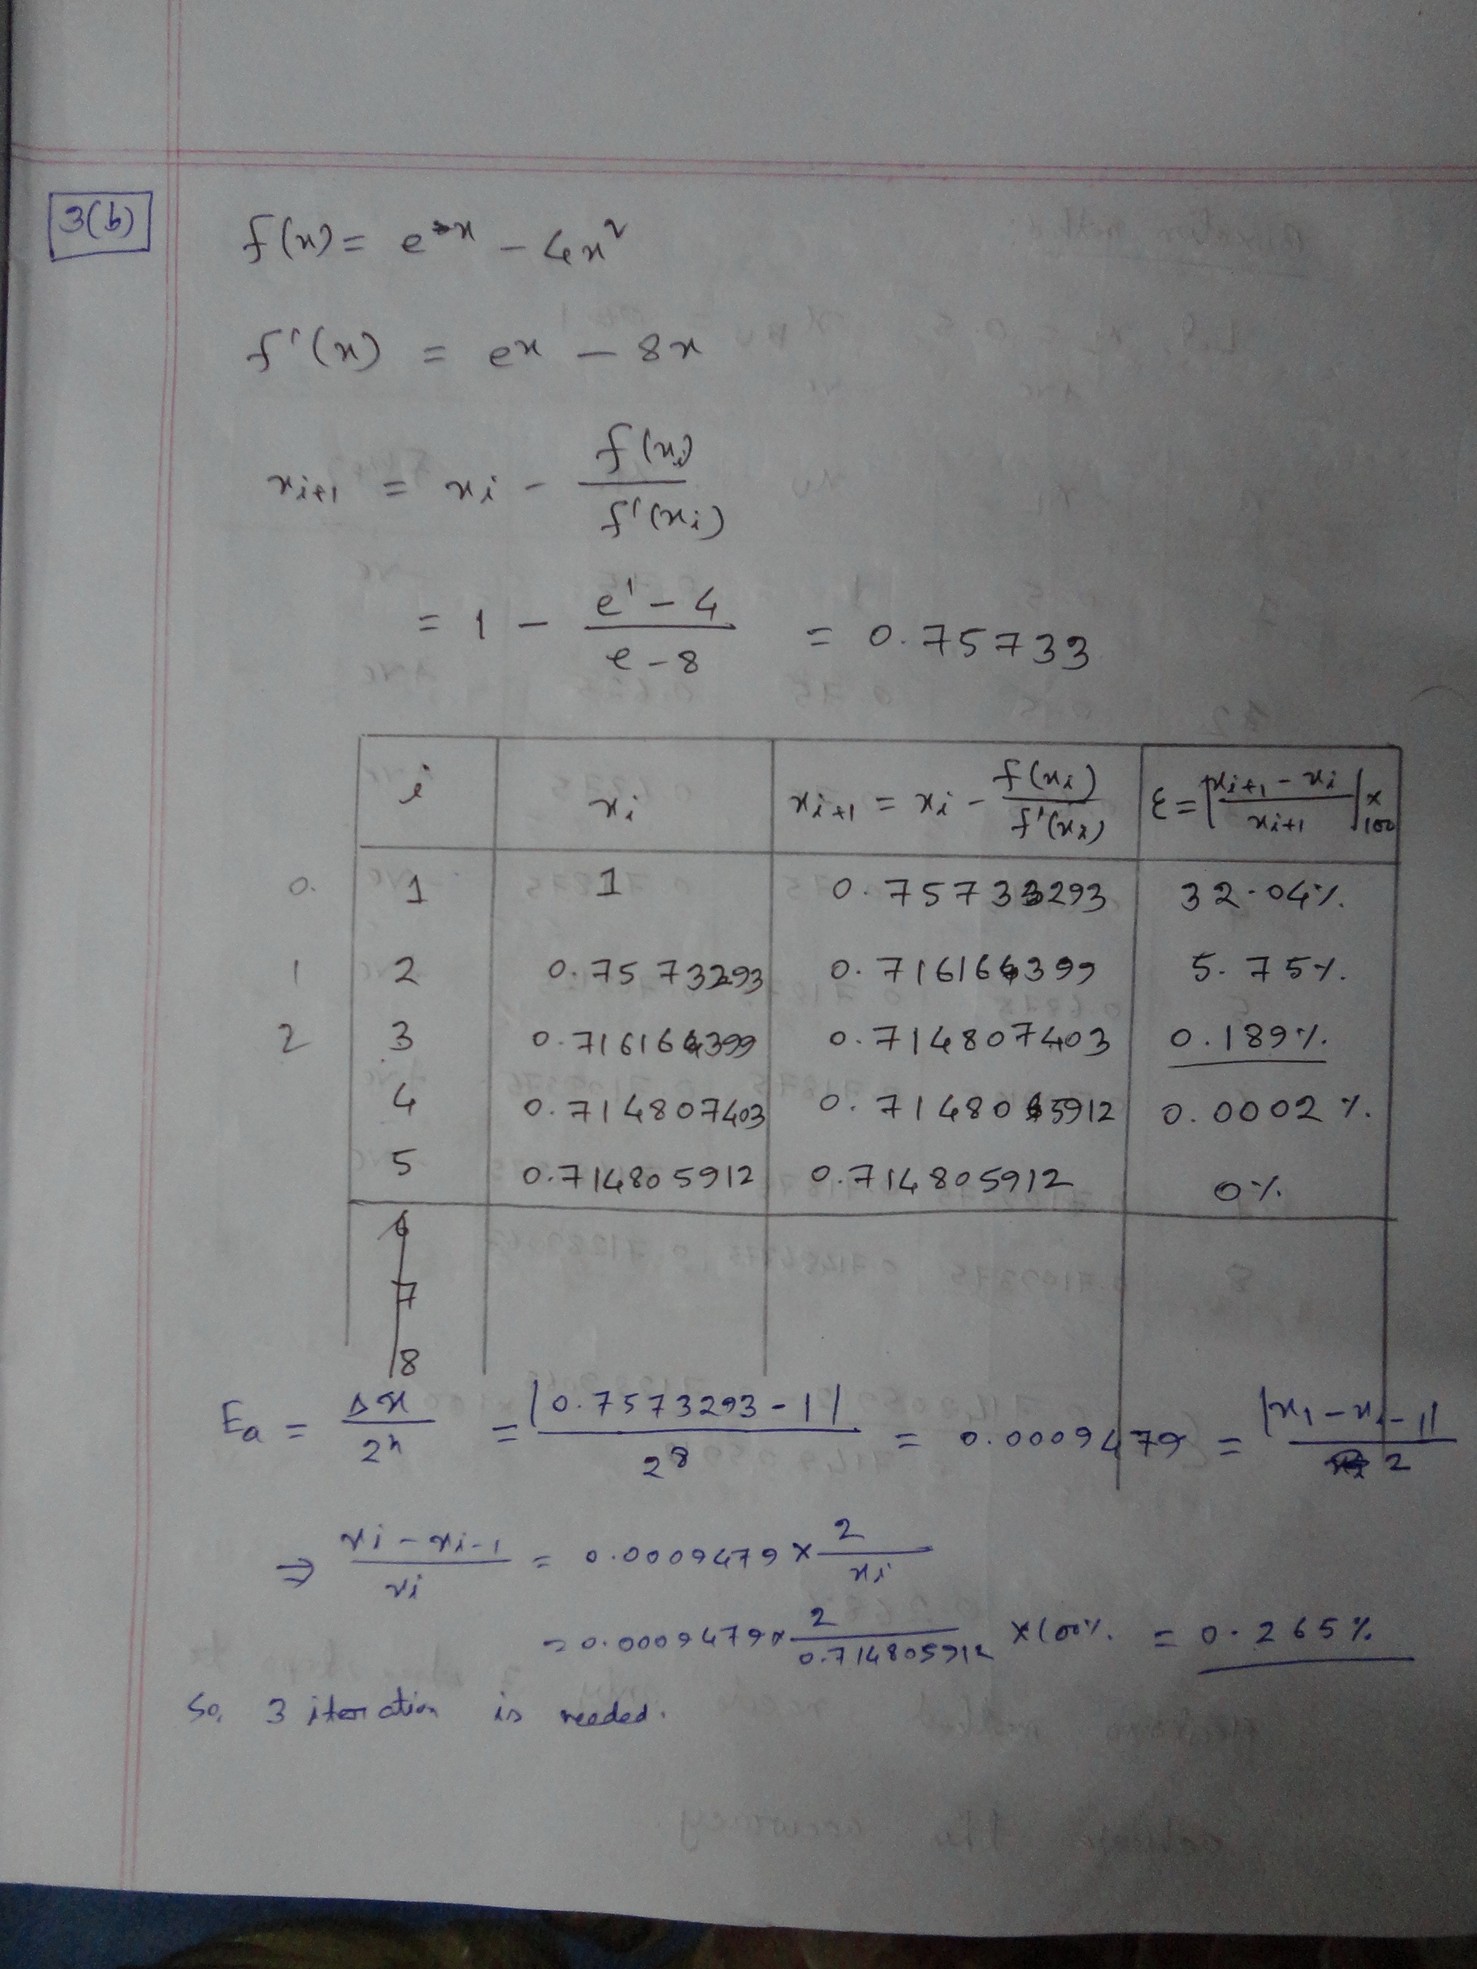 3(b)
f(x) = e^x - 4x²
f'(x) = e^x - 8x
x_{i+1} = x_i - f(x_i) / f'(x_i)
= 1 - (e^1 - 4) / (e - 8) = 0.75733
i x_i x_{i+1} = x_i - f(x_i) / f'(x_i) ε = |(x_{i+1} - x_i) / x_{i+1}| × 100
0. 1 1 0.75733293 32.04%.
1 2 0.7573293 0.716166399 5.75%.
2 3 0.716166399 0.714807403 0.189%.
4 0.714807403 0.714805912 0.0002%.
5 0.714805912 0.714805912 0%.
6
7
8
E_a = Δx / 2^n = |0.7573293 - 1| / 2^8 = 0.0009479 = |x_i - x_{i-1}| / 2
⇒ (x_i - x_{i-1}) / x_i = 0.0009479 × 2 / x_i
= 0.0009479 × 2 / 0.714805912 × 100%. = 0.265%
So, 3 iteration is needed.